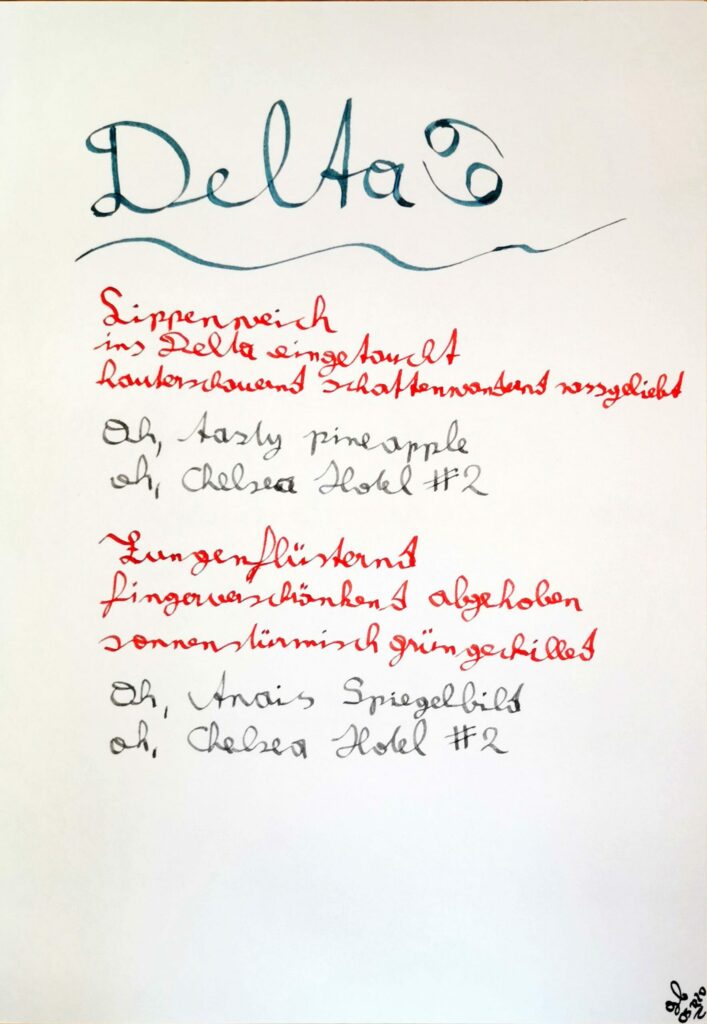 Delta ♋
Lippenweich
ins Delta eingetaucht
hauterschauernd schattenwandernd nassgeliebt
Oh, tasty pineapple
oh, Chelsea Hotel #2
Zungenflüsternd
fingerverschränkend abgehoben
sonnenstürmisch grüngechilled
Oh, Anais Spiegelbild
oh, Chelsea Hotel #2